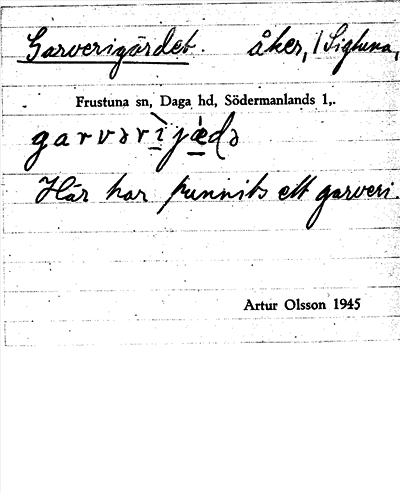 Garverigärdet. åker, / Sigtuna,
Frustuna sn, Daga hd, Södermanlands l,.
garvərì̱jæ̱̀də
Här har funnits ett garveri.
Artur Olsson 1945